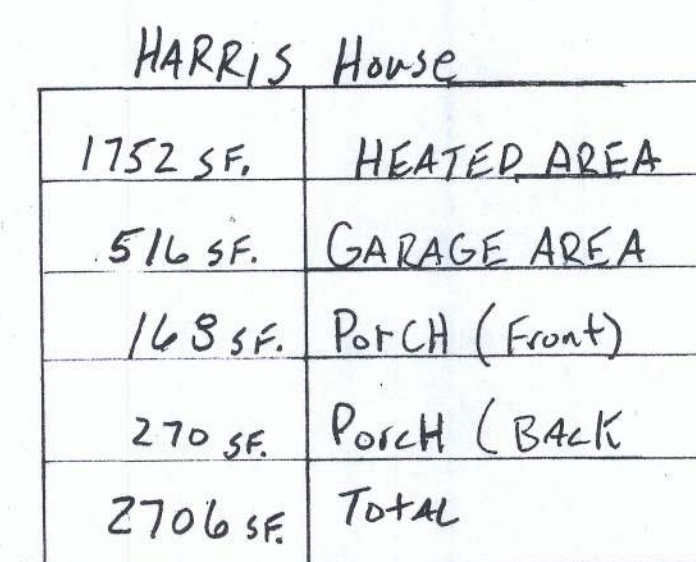 HARRIS House
1752 SF. HEATED AREA
516 SF. GARAGE AREA
168 SF. PORCH (Front)
270 SF. PORCH (BACK
2706 SF. TOTAL